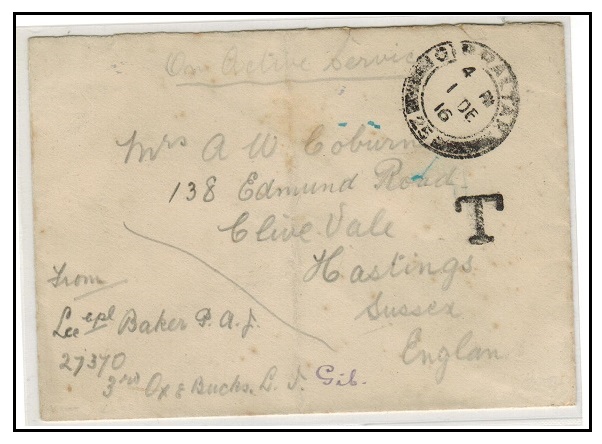 On Active Service
4 PM
1 DE
16
T
Mrs A W Coburn
138 Edmund Road
Clive Vale
Hastings
Sussex
Englan
From
Lce cpl Baker P. A. J.
27370
3rd Ox & Bucks. L. I. Gib.